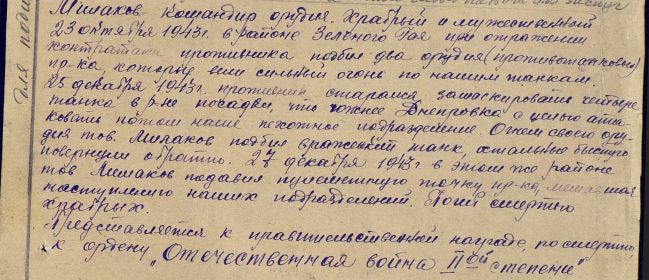 Милаков командир орудия. Храбрый и мужественный
23 октября 1943г. в районе Зелёного Гая при отражении
контратаки противника подбил два орудия (противотанковых)
пр-ка, которые вели сильный огонь по нашим танкам.
25 декабря 1943г. противник старался замаскировать четыре
танка в р-не посадки, что южнее Днепровка с целью ата-
ковать потом наше пехотное подразделение. Огнем своего ору-
дия тов. Милаков подбил вражеский танк, остальные быстро
повернули обратно. 27 декабря 1943г в этом же районе
тов Милаков подавил пулеметную точку пр-ка, мешавшая
наступлению наших подразделений. Погиб смертью
храбрых.
Представляется к правительственной награде, посмертно
к ордену "Отечественная война IIой степени"
для подши